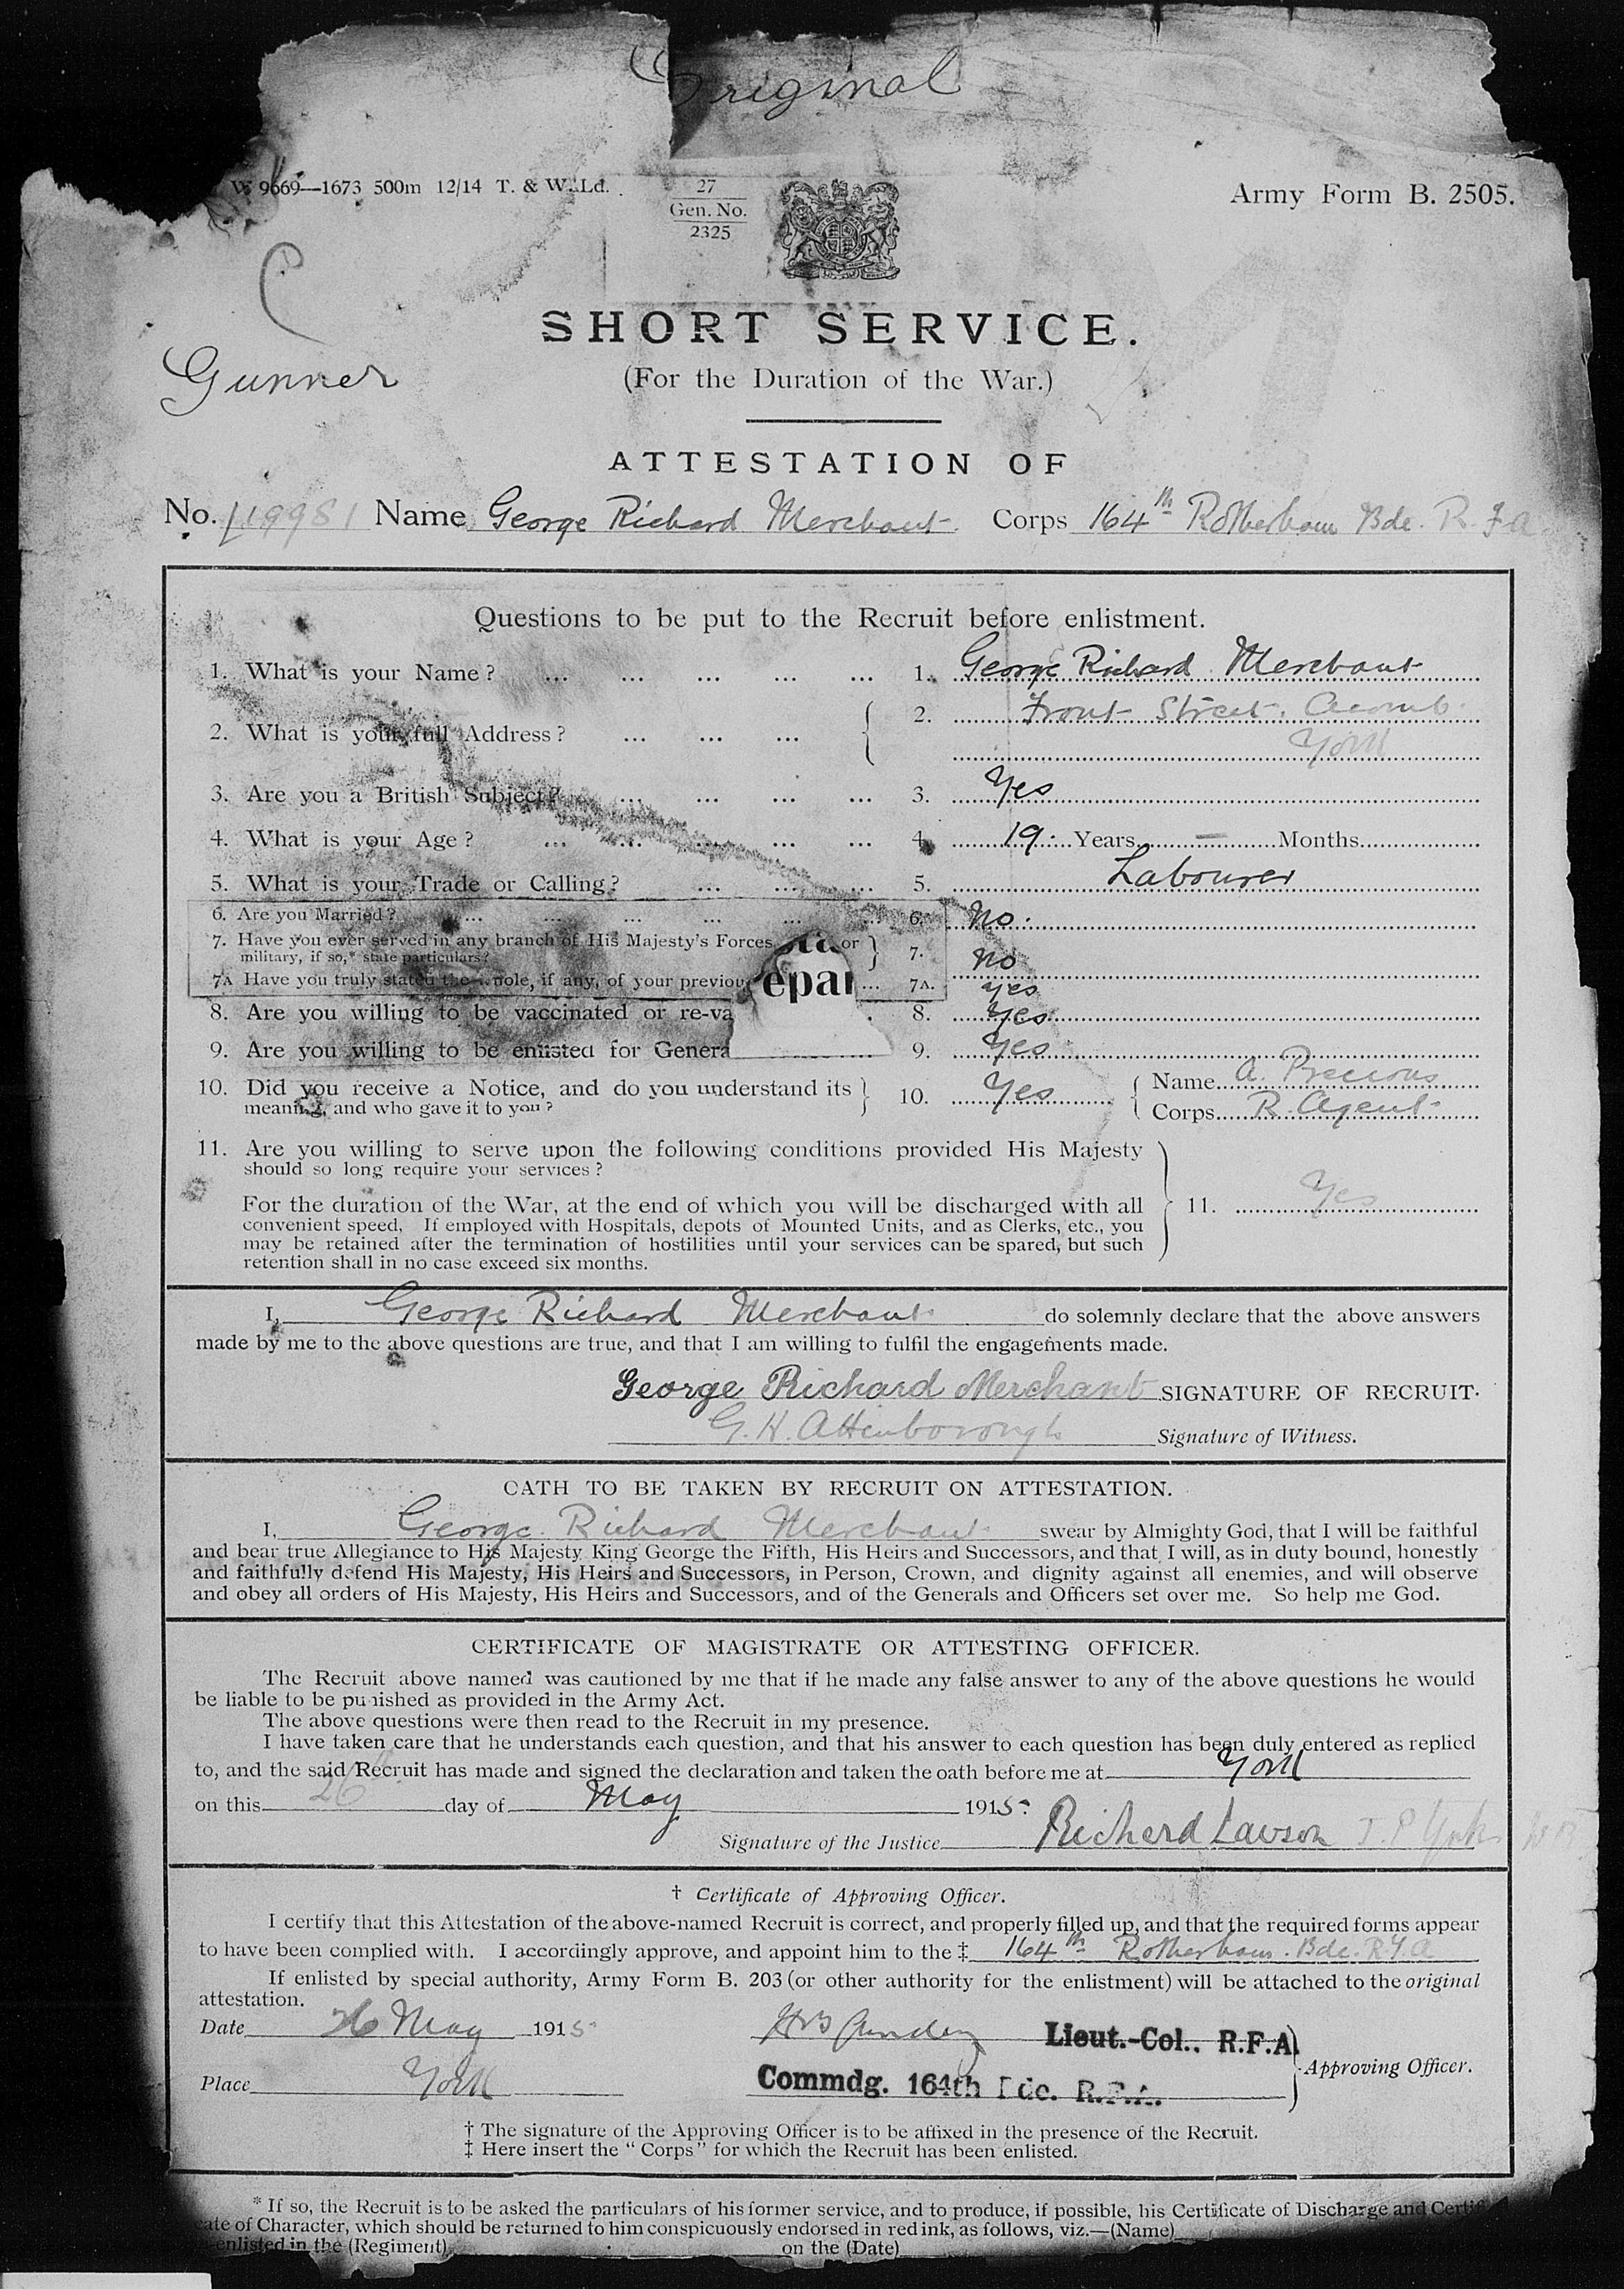 Original
W 9669—1673 500m 12/14 T. & W. Ld.
27
Gen. No.
2325
Army Form B. 2505.
C
SHORT SERVICE.
Gunner
(For the Duration of the War.)
ATTESTATION OF
No. L19981 Name George Richard Merchant Corps 164th Rotherham Bde. R.F.A
Questions to be put to the Recruit before enlistment.
1. What is your Name? ... ... ... ... ... 1. George Richard Merchant
2. What is your full Address? ... ... ... 2. Front Street. Acomb.
York
3. Are you a British Subject? ... ... ... ... 3. Yes
4. What is your Age? ... ... ... ... ... 4. 19. Years — Months
5. What is your Trade or Calling? ... ... ... 5. Labourer
6. Are you Married? ... ... ... ... ... ... 6. No.
7. Have you ever served in any branch of His Majesty's Forces or 7. No
military, if so,* state particulars?
7A Have you truly stated the whole, if any, of your previou ... 7A. Yes
epar
8. Are you willing to be vaccinated or re-va . 8. Yes
9. Are you willing to be enlisted for Genera 9. Yes
10. Did you receive a Notice, and do you understand its 10. Yes Name A. Precious
meaning, and who gave it to you? Corps R. Agent
11. Are you willing to serve upon the following conditions provided His Majesty
should so long require your services?
For the duration of the War, at the end of which you will be discharged with all 11. Yes
convenient speed. If employed with Hospitals, depots of Mounted Units, and as Clerks, etc., you
may be retained after the termination of hostilities until your services can be spared, but such
retention shall in no case exceed six months.
I, George Richard Merchant do solemnly declare that the above answers
made by me to the above questions are true, and that I am willing to fulfil the engagements made.
George Richard Merchant SIGNATURE OF RECRUIT.
G. H. Attenborough Signature of Witness.
OATH TO BE TAKEN BY RECRUIT ON ATTESTATION.
I, George Richard Merchant swear by Almighty God, that I will be faithful
and bear true Allegiance to His Majesty King George the Fifth, His Heirs and Successors, and that I will, as in duty bound, honestly
and faithfully defend His Majesty, His Heirs and Successors, in Person, Crown, and dignity against all enemies, and will observe
and obey all orders of His Majesty, His Heirs and Successors, and of the Generals and Officers set over me. So help me God.
CERTIFICATE OF MAGISTRATE OR ATTESTING OFFICER.
The Recruit above named was cautioned by me that if he made any false answer to any of the above questions he would
be liable to be punished as provided in the Army Act.
The above questions were then read to the Recruit in my presence.
I have taken care that he understands each question, and that his answer to each question has been duly entered as replied
to, and the said Recruit has made and signed the declaration and taken the oath before me at York
on this 26 day of May 1915.
Signature of the Justice Richard Lawson J.P. York
† Certificate of Approving Officer.
I certify that this Attestation of the above-named Recruit is correct, and properly filled up, and that the required forms appear
to have been complied with. I accordingly approve, and appoint him to the ‡ 164th Rotherham. Bde. R.F.A
If enlisted by special authority, Army Form B. 203 (or other authority for the enlistment) will be attached to the original
attestation.
Date 26 May 1915 Lieut.-Col., R.F.A.
Approving Officer.
Place York Commdg. 164th Bde. R.F.A.
† The signature of the Approving Officer is to be affixed in the presence of the Recruit.
‡ Here insert the "Corps" for which the Recruit has been enlisted.
* If so, the Recruit is to be asked the particulars of his former service, and to produce, if possible, his Certificate of Discharge and Certifi
cate of Character, which should be returned to him conspicuously endorsed in red ink, as follows, viz.—(Name)
enlisted in the (Regiment) on the (Date)